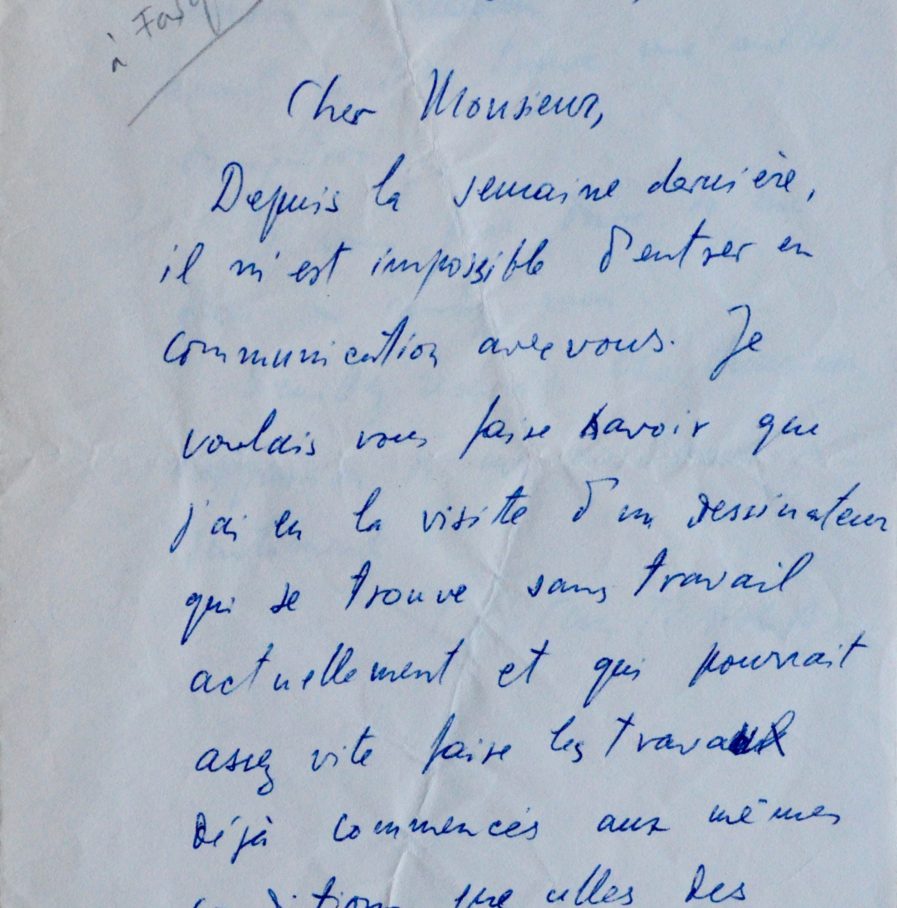 à
Cher Monsieur,
Depuis la semaine dernière,
il m'est impossible d'entrer en
communication avec vous. Je
voulais vous faire savoir que
j'ai eu la visitte d'un dessinateur
qui se trouve sans travail
actuellement et qui pourrait
assez vite faire les travaux
déjà commencés aux mêmes
conditions que celles des